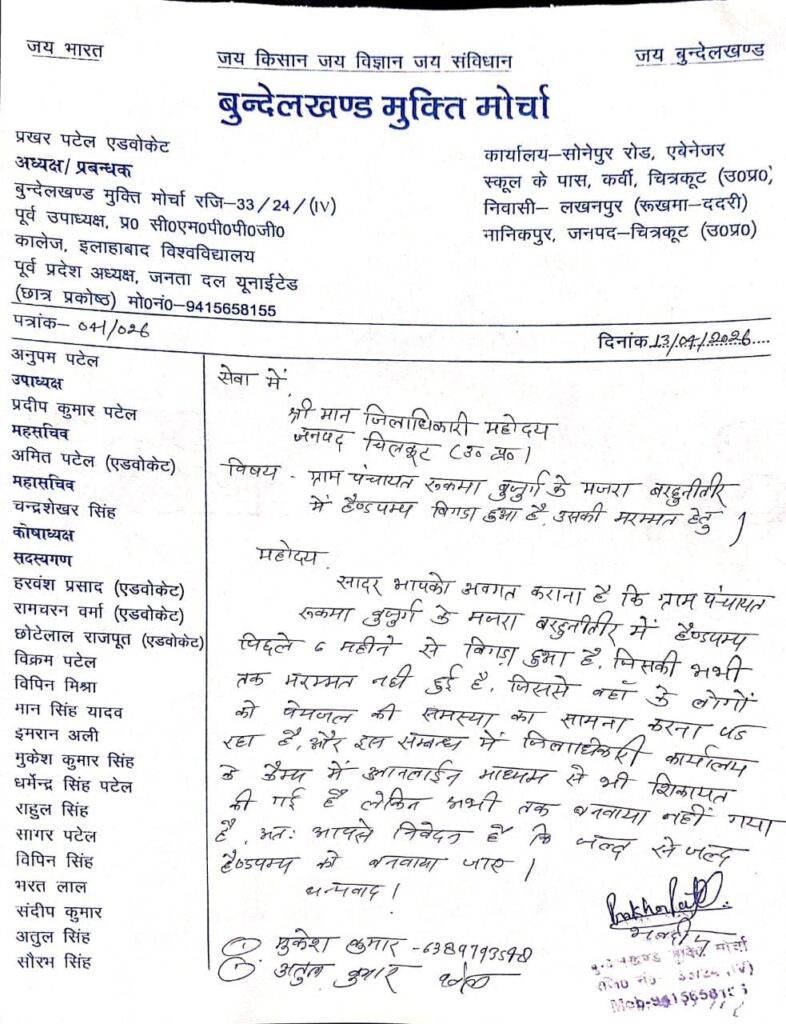 जय भारत
जय किसान जय विज्ञान जय संविधान
जय बुन्देलखण्ड
बुन्देलखण्ड मुक्ति मोर्चा
प्रखर पटेल एडवोकेट
अध्यक्ष/प्रबन्धक
बुन्देलखण्ड मुक्ति मोर्चा रजि–33/24/(IV)
पूर्व उपाध्यक्ष, प्र0 सी0एम0पी0पी0जी0
कालेज, इलाहाबाद विश्वविद्यालय
पूर्व प्रदेश अध्यक्ष, जनता दल यूनाईटेड
(छात्र प्रकोष्ठ) मो0नं0–9415658155
कार्यालय–सोनेपुर रोड, एबेनेजर
स्कूल के पास, कर्वी, चित्रकूट (उ0प्र0)
निवासी– लखनपुर (रूखमा–ददरी)
नानिकपुर, जनपद–चित्रकूट (उ0प्र0)
पत्रांक– 041/026
दिनांक 13/04/2026....
अनुपम पटेल
उपाध्यक्ष
प्रदीप कुमार पटेल
महसचिव
अमित पटेल (एडवोकेट)
महासचिव
चन्द्रशेखर सिंह
कोषाध्यक्ष
सदस्यगण
हरवंश प्रसाद (एडवोकेट)
रामचरन वर्मा (एडवोकेट)
छोटेलाल राजपूत (एडवोकेट)
विक्रम पटेल
विपिन मिश्रा
मान सिंह यादव
इमरान अली
मुकेश कुमार सिंह
धर्मेन्द्र सिंह पटेल
राहुल सिंह
सागर पटेल
विपिन सिंह
भरत लाल
संदीप कुमार
अतुल सिंह
सौरभ सिंह
सेवा में,
श्री मान जिलाधिकारी महोदय
जनपद चित्रकूट (उ० प्र०)
विषय - ग्राम पंचायत रूकमा बुजुर्ग के मजरा बरहुनीतीर
में हैण्डपम्प बिगडा हुआ है, उसकी मरम्मत हेतु।
महोदय,
सादर आपको अवगत कराना है कि ग्राम पंचायत
रूकमा बुजुर्ग के मजरा बरहुनीतीर में हैण्डपम्प
पिछले 6 महीने से बिगड़ा हुआ है, जिसकी अभी
तक मरम्मत नही हुई है, जिससे वहाँ के लोगों
को पेयजल की समस्या का सामना करना पड
रहा है, और इस सम्बन्ध में जिलाधिकारी कार्यालय
के कैम्प में आनलाईन माध्यम से भी शिकायत
की गई है लेकिन अभी तक बनवाया नहीं गया
है, अतः आपसे निवेदन है कि जल्द से जल्द
हैण्डपम्प को बनवाया जाए।
धन्यवाद।
Prakhar Patel
① मुकेश कुमार -6389793598
② अतुल कुमार
बुन्देलखण्ड मुक्ति मोर्चा
रजि0 नं0- 33/24 (IV)
Mob-9415658155